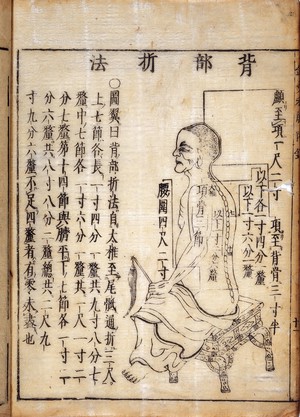 背部折法
項至
以下各一寸四分一釐
以下一寸六分一釐
腰圍四尺二寸
〇圖翼曰背部折法自大椎至尾骶通折三尺
上七節各長一寸四分一釐共九寸八分七
釐中七節各一寸六分一釐共一尺一寸二
分七釐第十四節與臍平下七節各一寸二
分六釐共八寸八分二釐總共二尺九
寸九分六釐不足四釐者有零未盡也